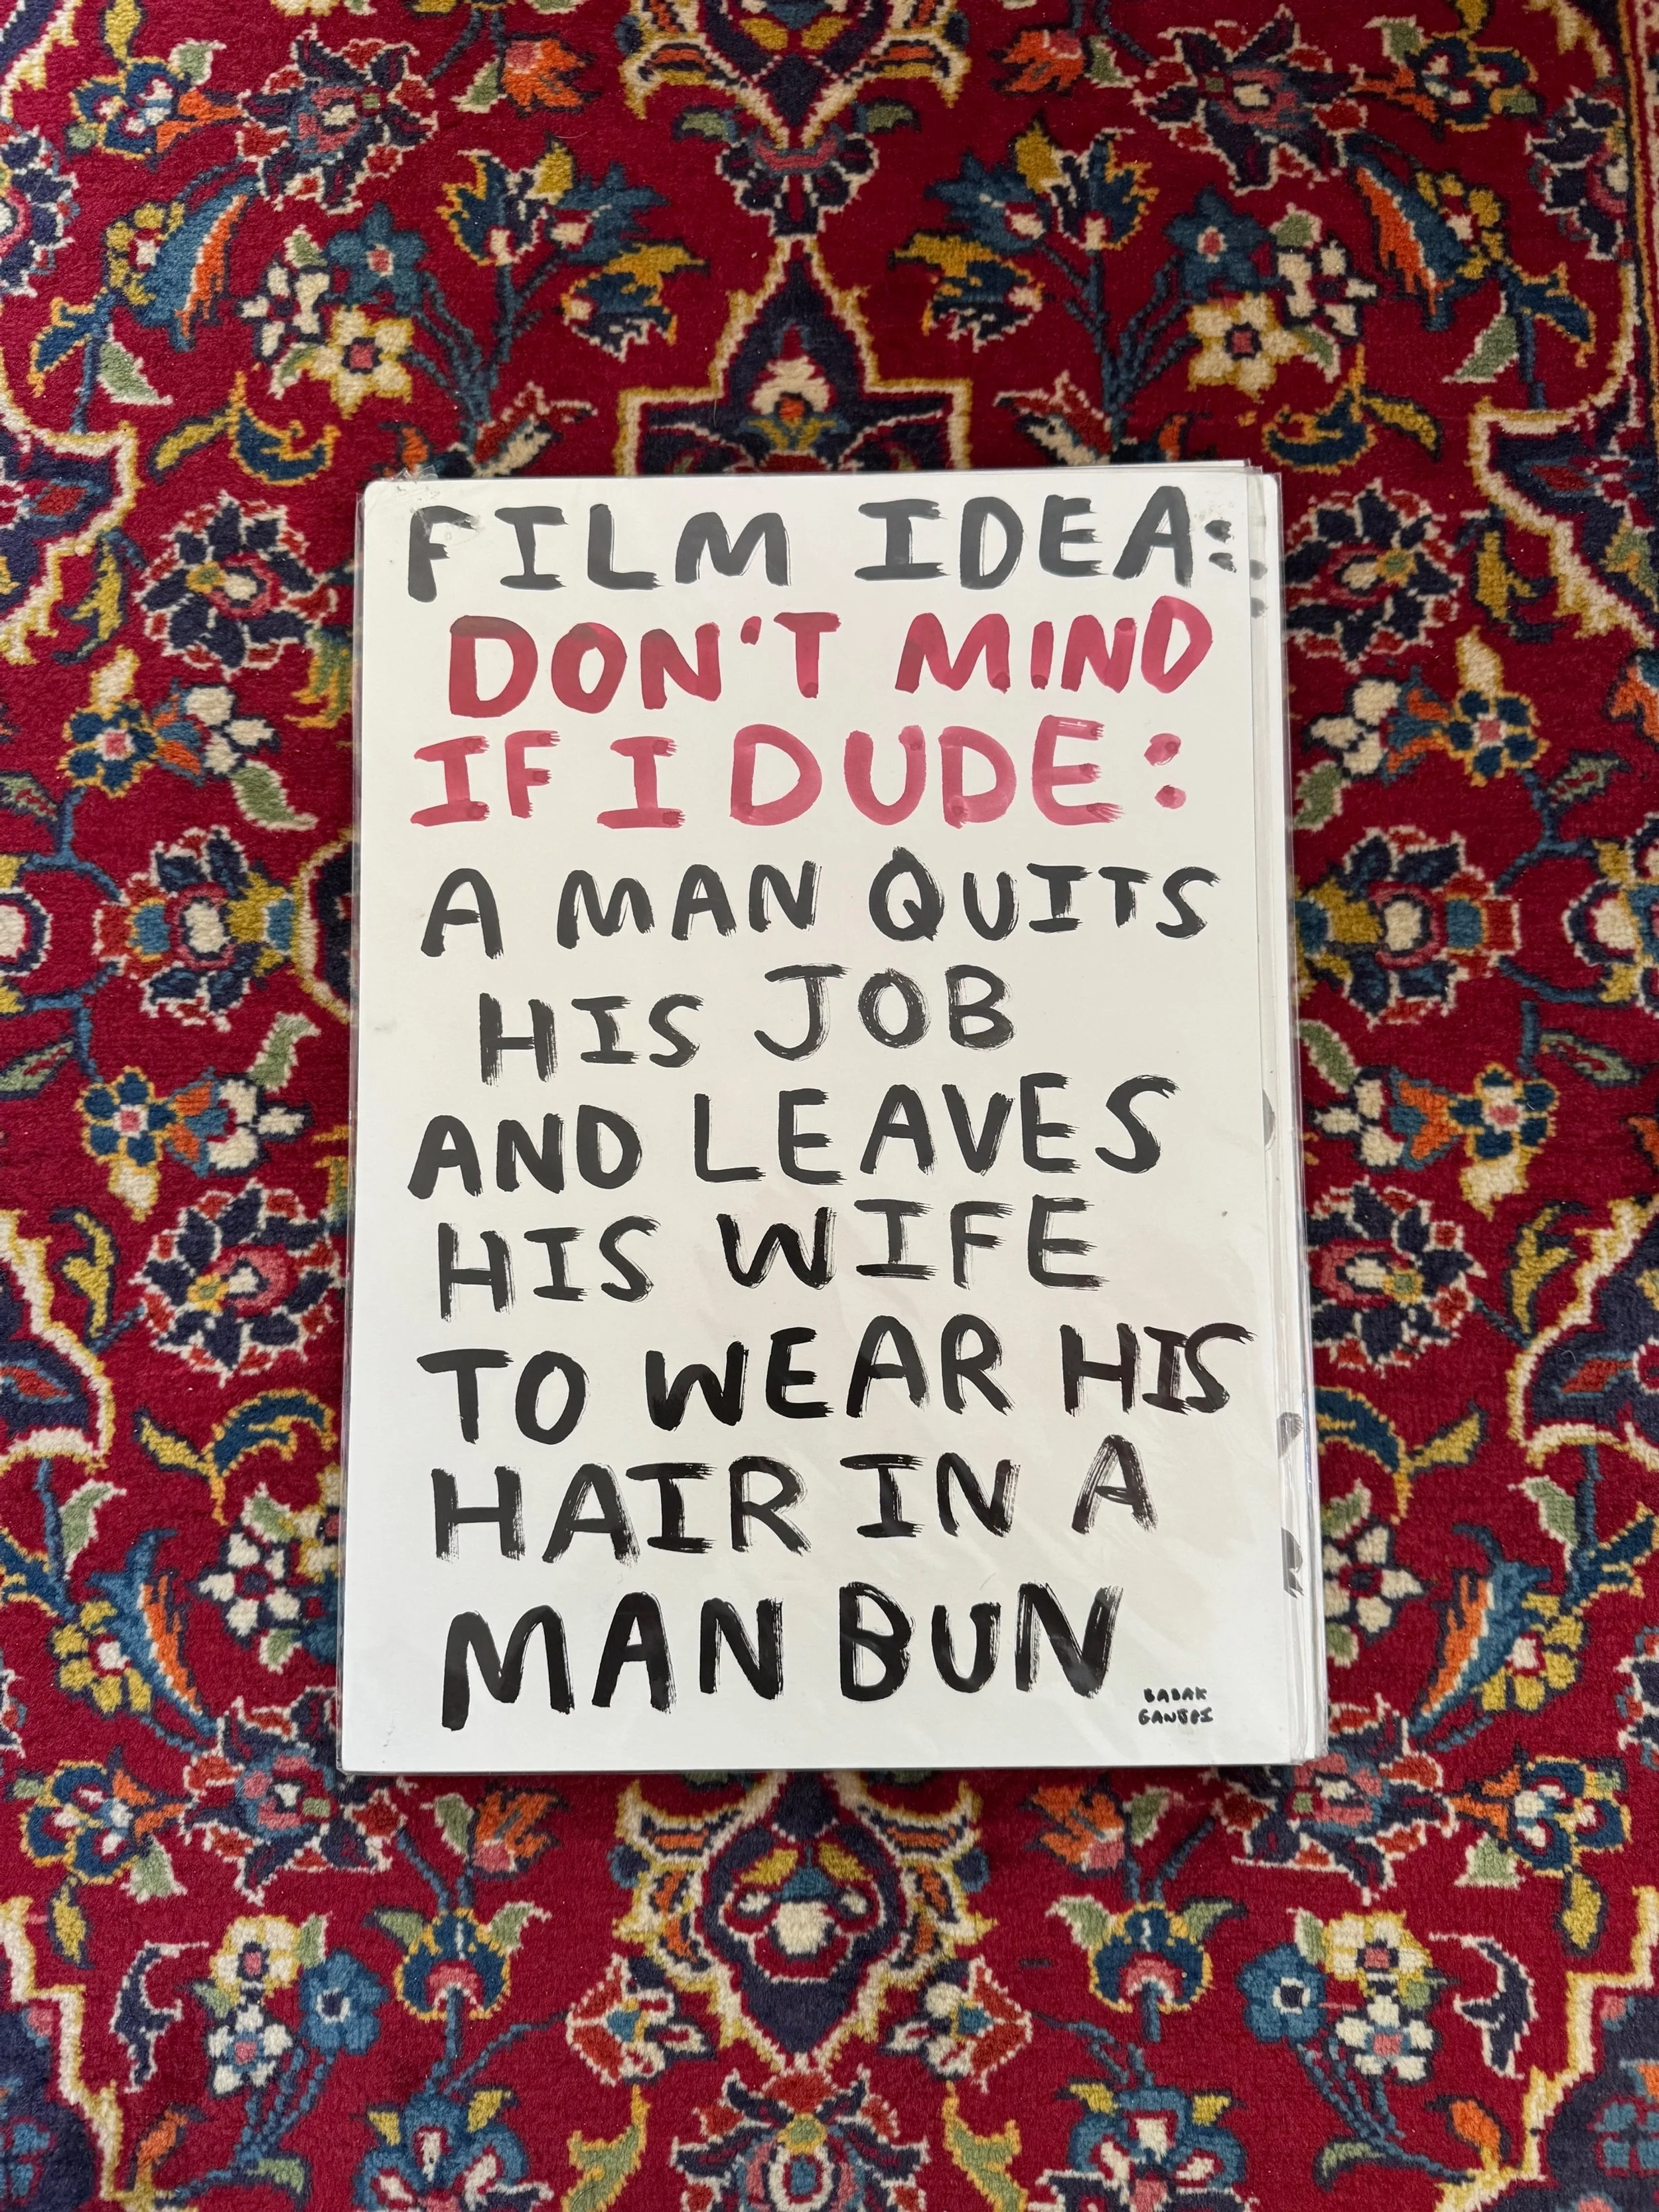 FILM IDEA:
DON'T MIND
IF I DUDE:
A MAN QUITS
HIS JOB
AND LEAVES
HIS WIFE
TO WEAR HIS
HAIR IN A
MAN BUN
BABAK
GANJEI